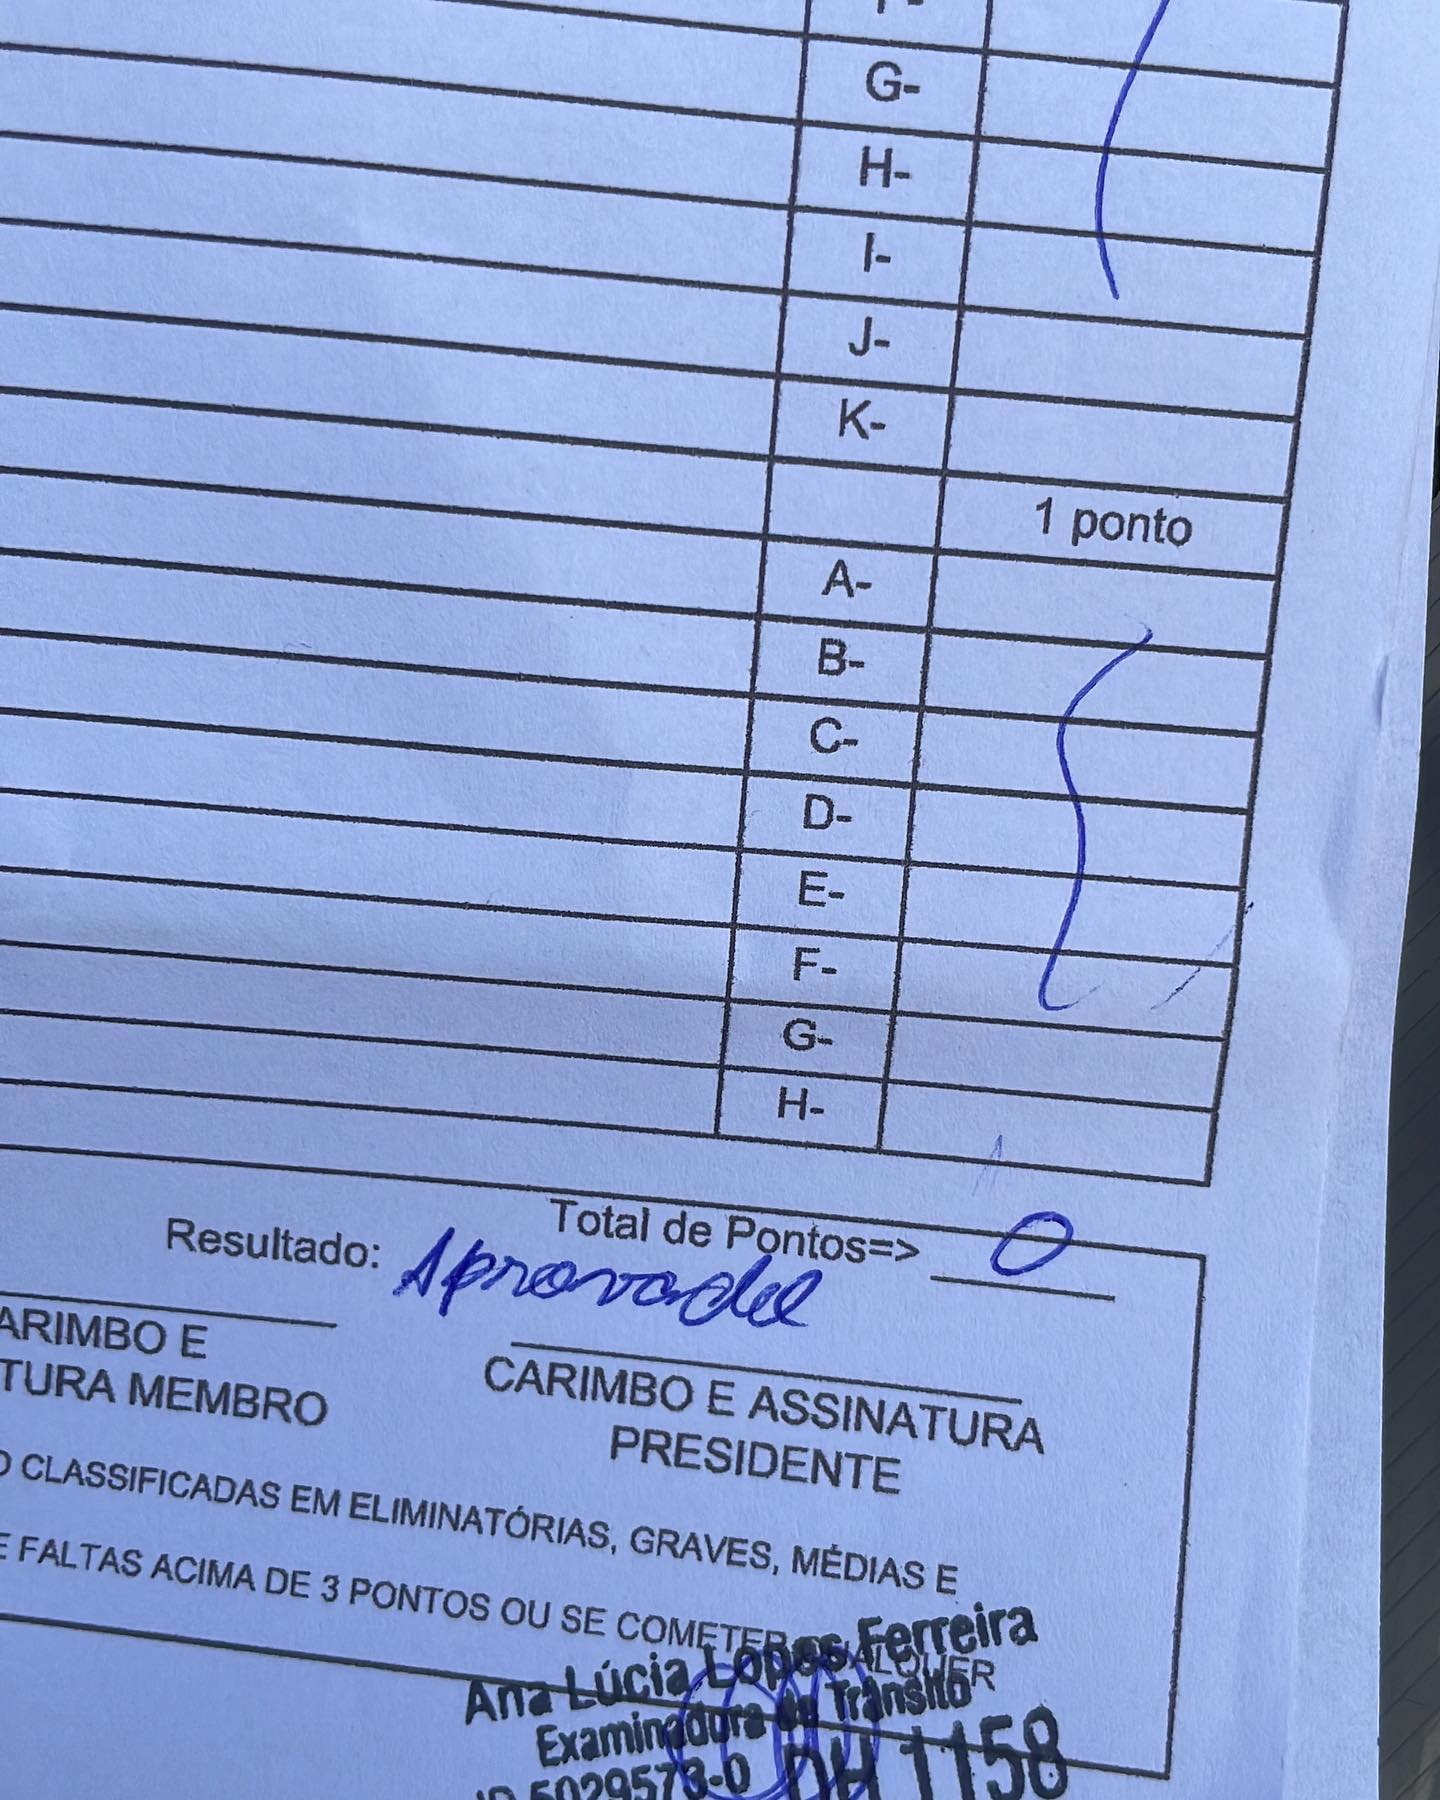 G-
H-
I-
J-
K-
1 ponto
A-
B-
C-
D-
E-
F-
G-
H-
Total de Pontos=> 0
Resultado: Aprovada
ARIMBO E
TURA MEMBRO
CARIMBO E ASSINATURA
PRESIDENTE
O CLASSIFICADAS EM ELIMINATÓRIAS, GRAVES, MÉDIAS E
E FALTAS ACIMA DE 3 PONTOS OU SE COMETER QUALQUER
Ana Lúcia Lopes Ferreira
Examinadora de Trânsito
ID 5029573-0 DH 1158